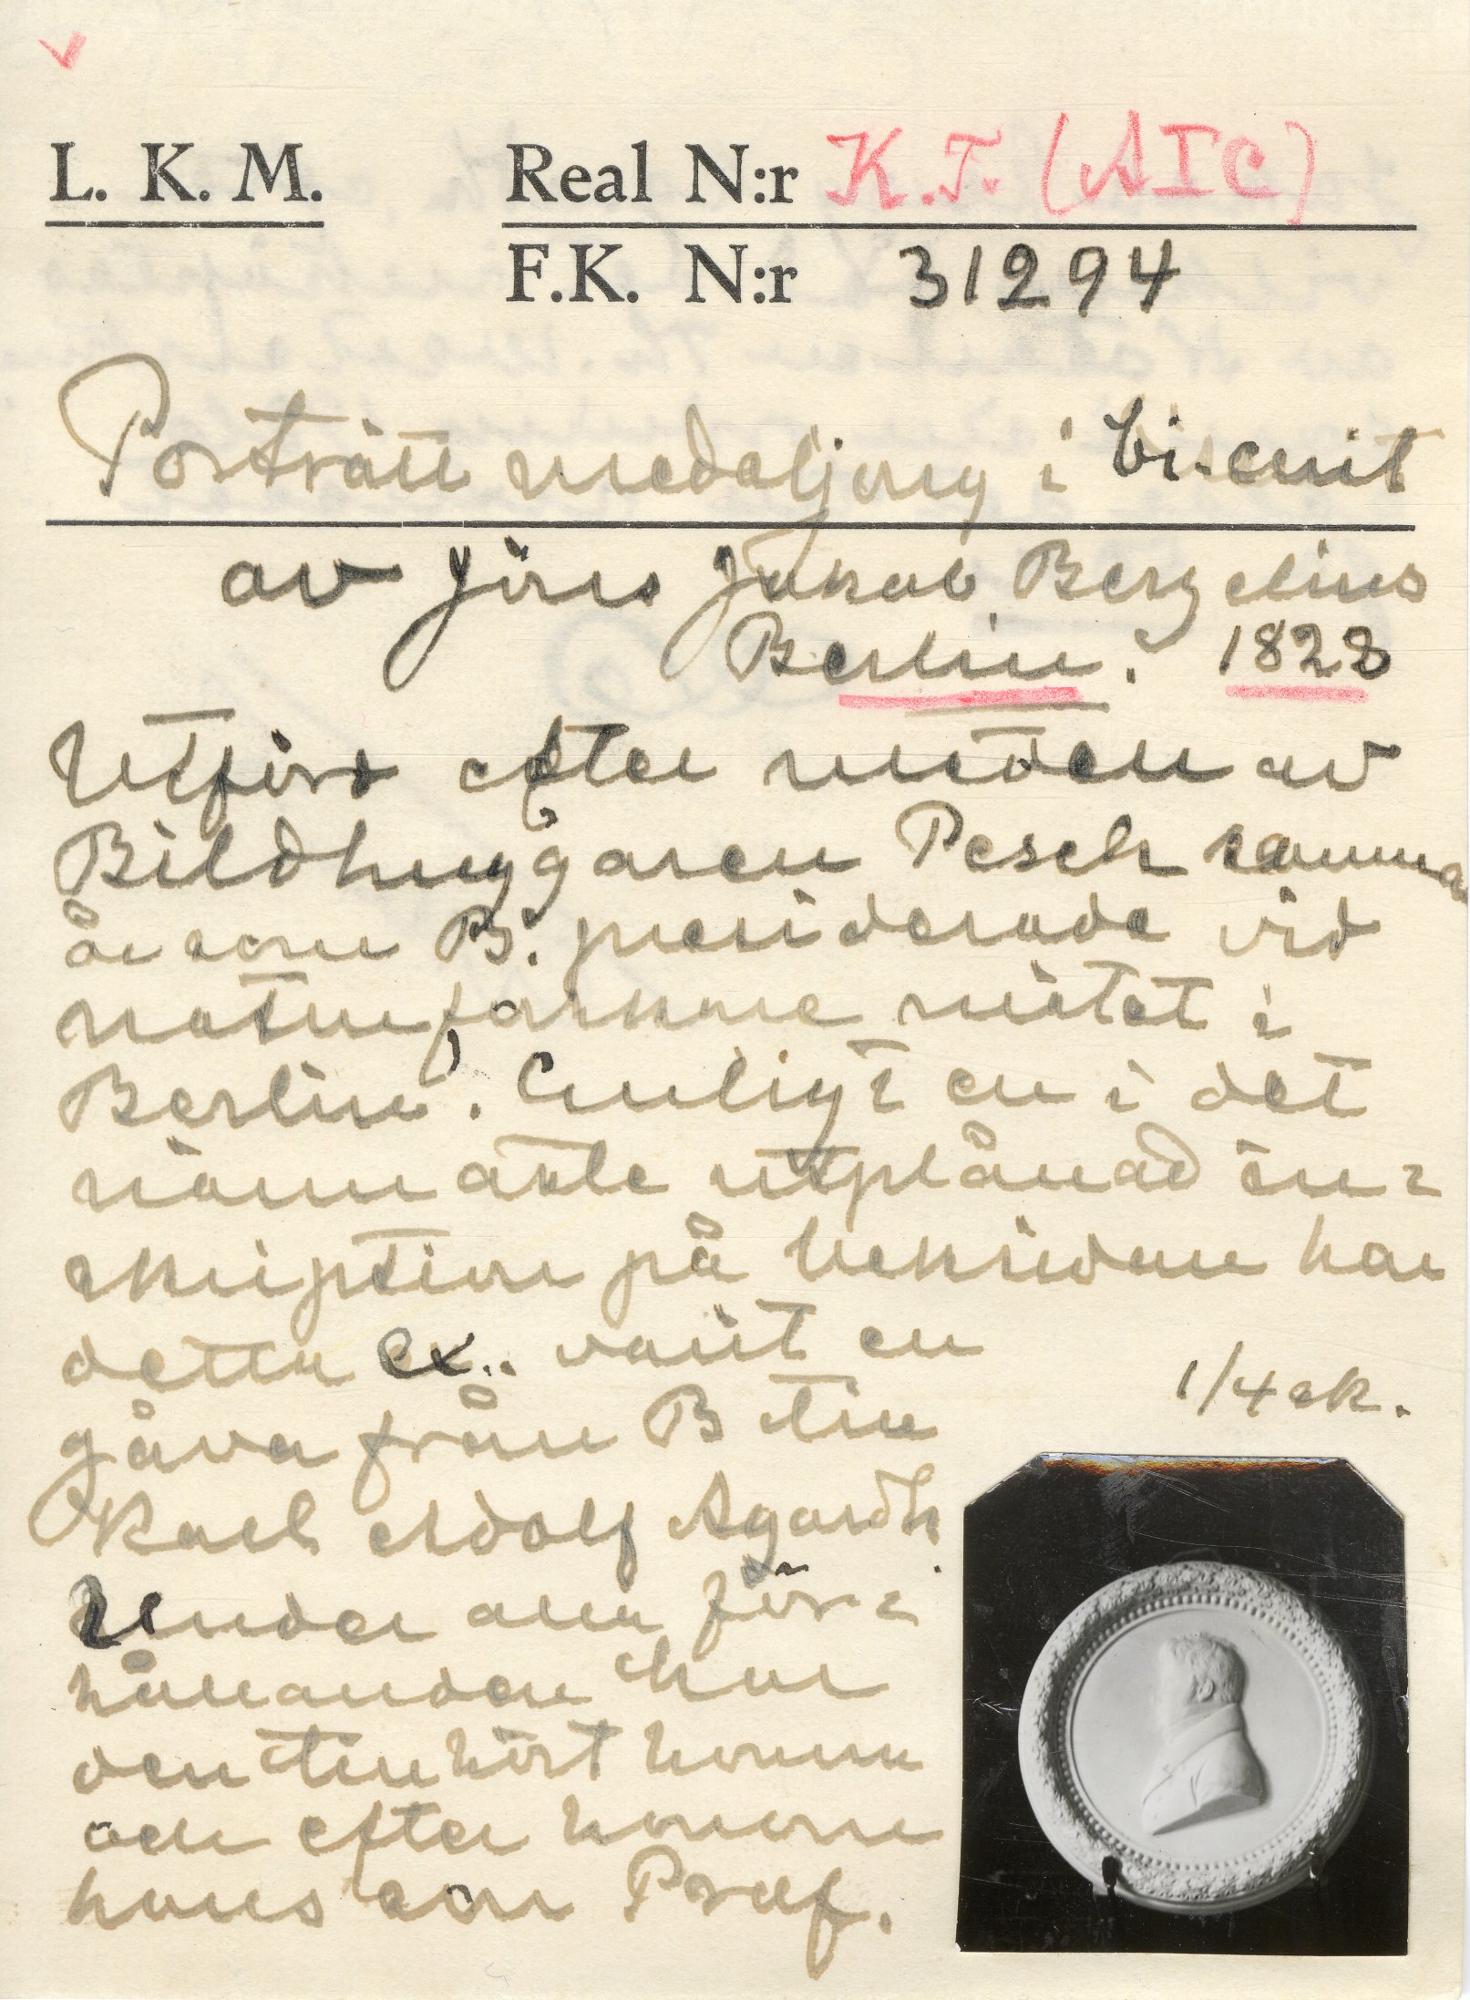 L. K. M.
Real N:r K.T. (AIC)
F.K. N:r 31294
Porträtt medaljong i biscuit
av Jöns Jakob Berzelius
Berlin. 1828
Utförd efter medalj av
Bildhuggaren Posch samma
år som B. presiderade vid
naturforskare mötet i
Berlin. Enligt en i det
närmaste utplånad in-
skription på baksidan har
detta ex. varit en
gåva från B till
Karl Adolf Agardh.
Under alla för-
hållanden har
den tillhört honom
och efter honom
hans son Prof.
1/4 sk.